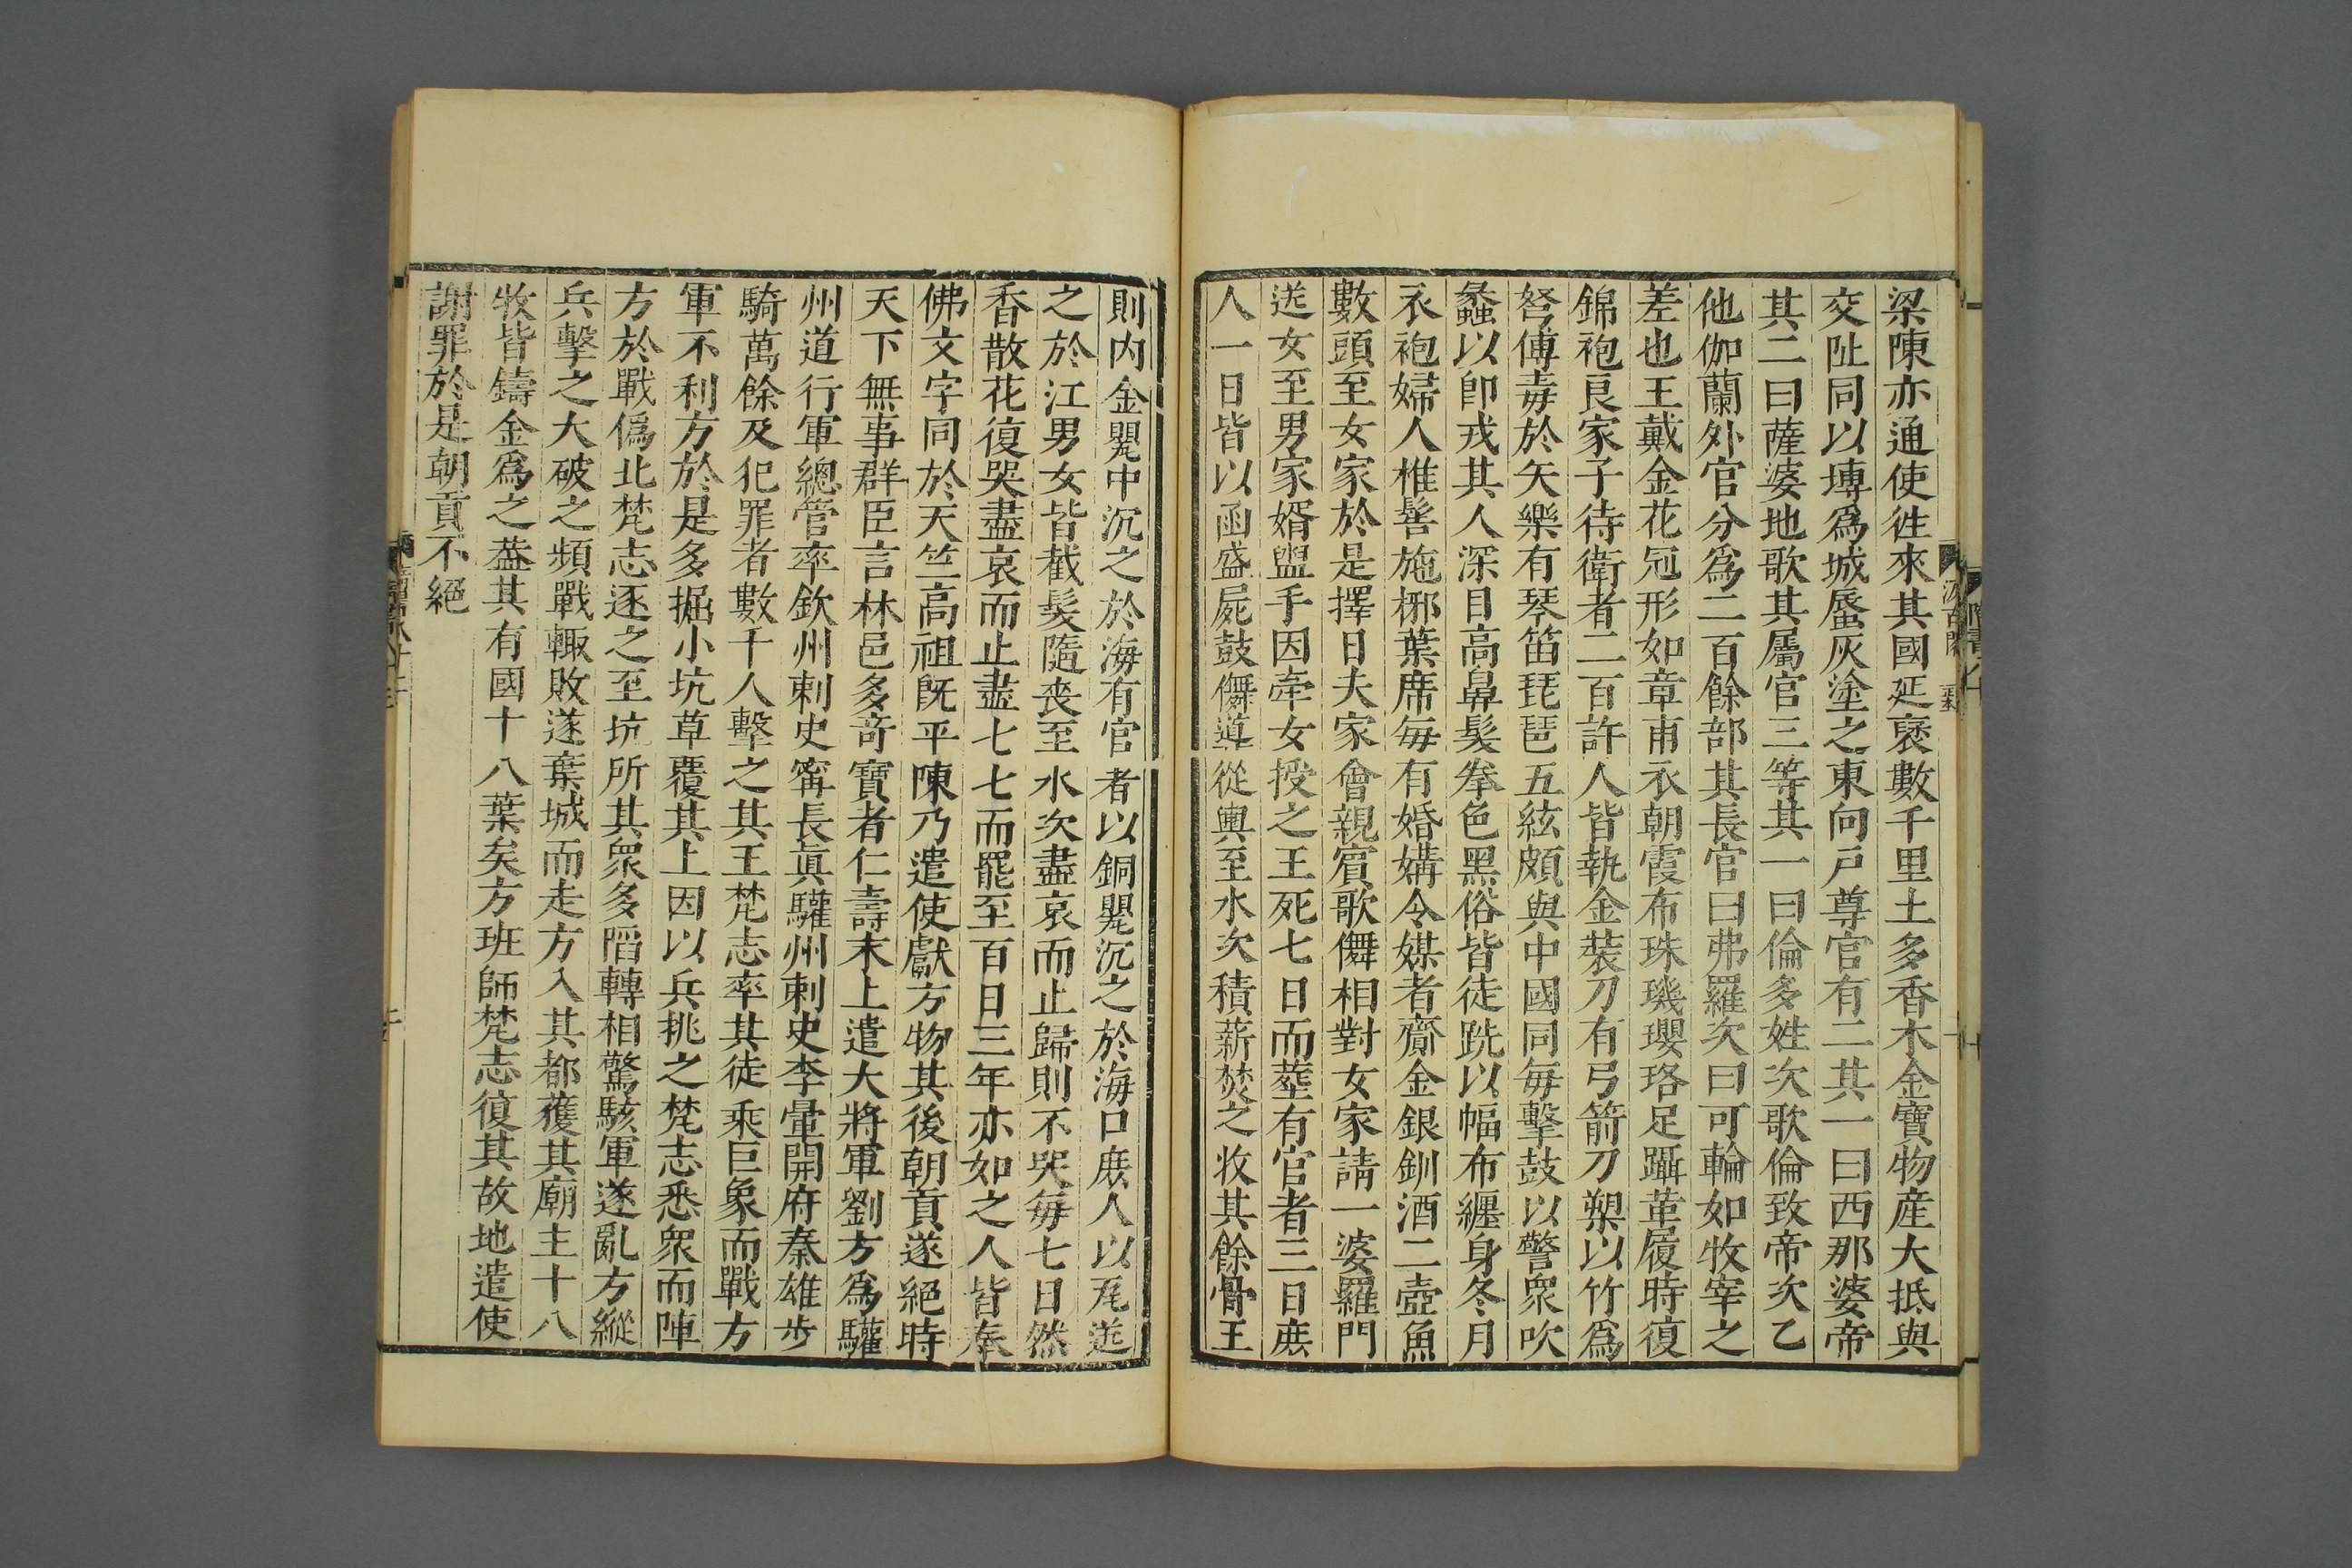 梁陳亦通使徃來其國延袤數千里土多香木金寶物産大抵與
交阯同以塼爲城蜃灰塗之東向戸尊官有二其一曰西那婆帝
其二曰薩婆地歌其屬官三等其一曰倫多姓次歌倫致帝次乙
他伽蘭外官分爲二百餘部其長官曰弗羅次曰可輪如牧宰之
差也王戴金花冠形如章甫衣朝霞布珠璣瓔珞足躡革履時復
錦袍良家子侍衛者二百許人皆執金裝刀有弓箭刀槊以竹爲
弩傅毒於矢樂有琴笛琵琶五絃頗與中國同毎擊鼓以警衆吹
蠡以卽戎其人深目高鼻髮拳色黑俗皆徒跣以幅布纏身冬月
衣袍婦人椎髻施椰葉席毎有婚媾令媒者齎金銀釧酒二壺魚
數頭至女家於是擇日夫家會親賔歌儛相對女家請一婆羅門
送女至男家婿盥手因牽女授之王死七日而葬有官者三日庶
人一日皆以函盛屍鼓儛導從輿至水次積薪焚之收其餘骨王
則内金甖中沉之於海有官者以銅甖沉之於海口庶人以瓦送
之於江男女皆截髮隨喪至水次盡哀而止歸則不哭毎七日然
香散花復哭盡哀而止盡七七而罷至百日三年亦如之人皆奉
佛文字同於天竺高祖旣平陳乃遣使獻方物其後朝貢遂絕時
天下無事群臣言林邑多奇寶者仁壽末上遣大將軍劉方爲驩
州道行軍總管率欽州刺史甯長眞驩州刺史李暈開府秦雄步
騎萬餘及犯罪者數千人擊之其王梵志率其徒乘巨象而戰方
軍不利方於是多掘小坑草覆其上因以兵挑之梵志悉衆而陣
方於戰僞北梵志逐之至坑所其衆多䧟轉相驚駭軍遂亂方縱
兵擊之大破之頻戰輙敗遂棄城而走方入其都獲其廟主十八
牧皆鑄金爲之葢其有國十八葉矣方班師梵志復其故地遣使
謝罪於是朝貢不絕